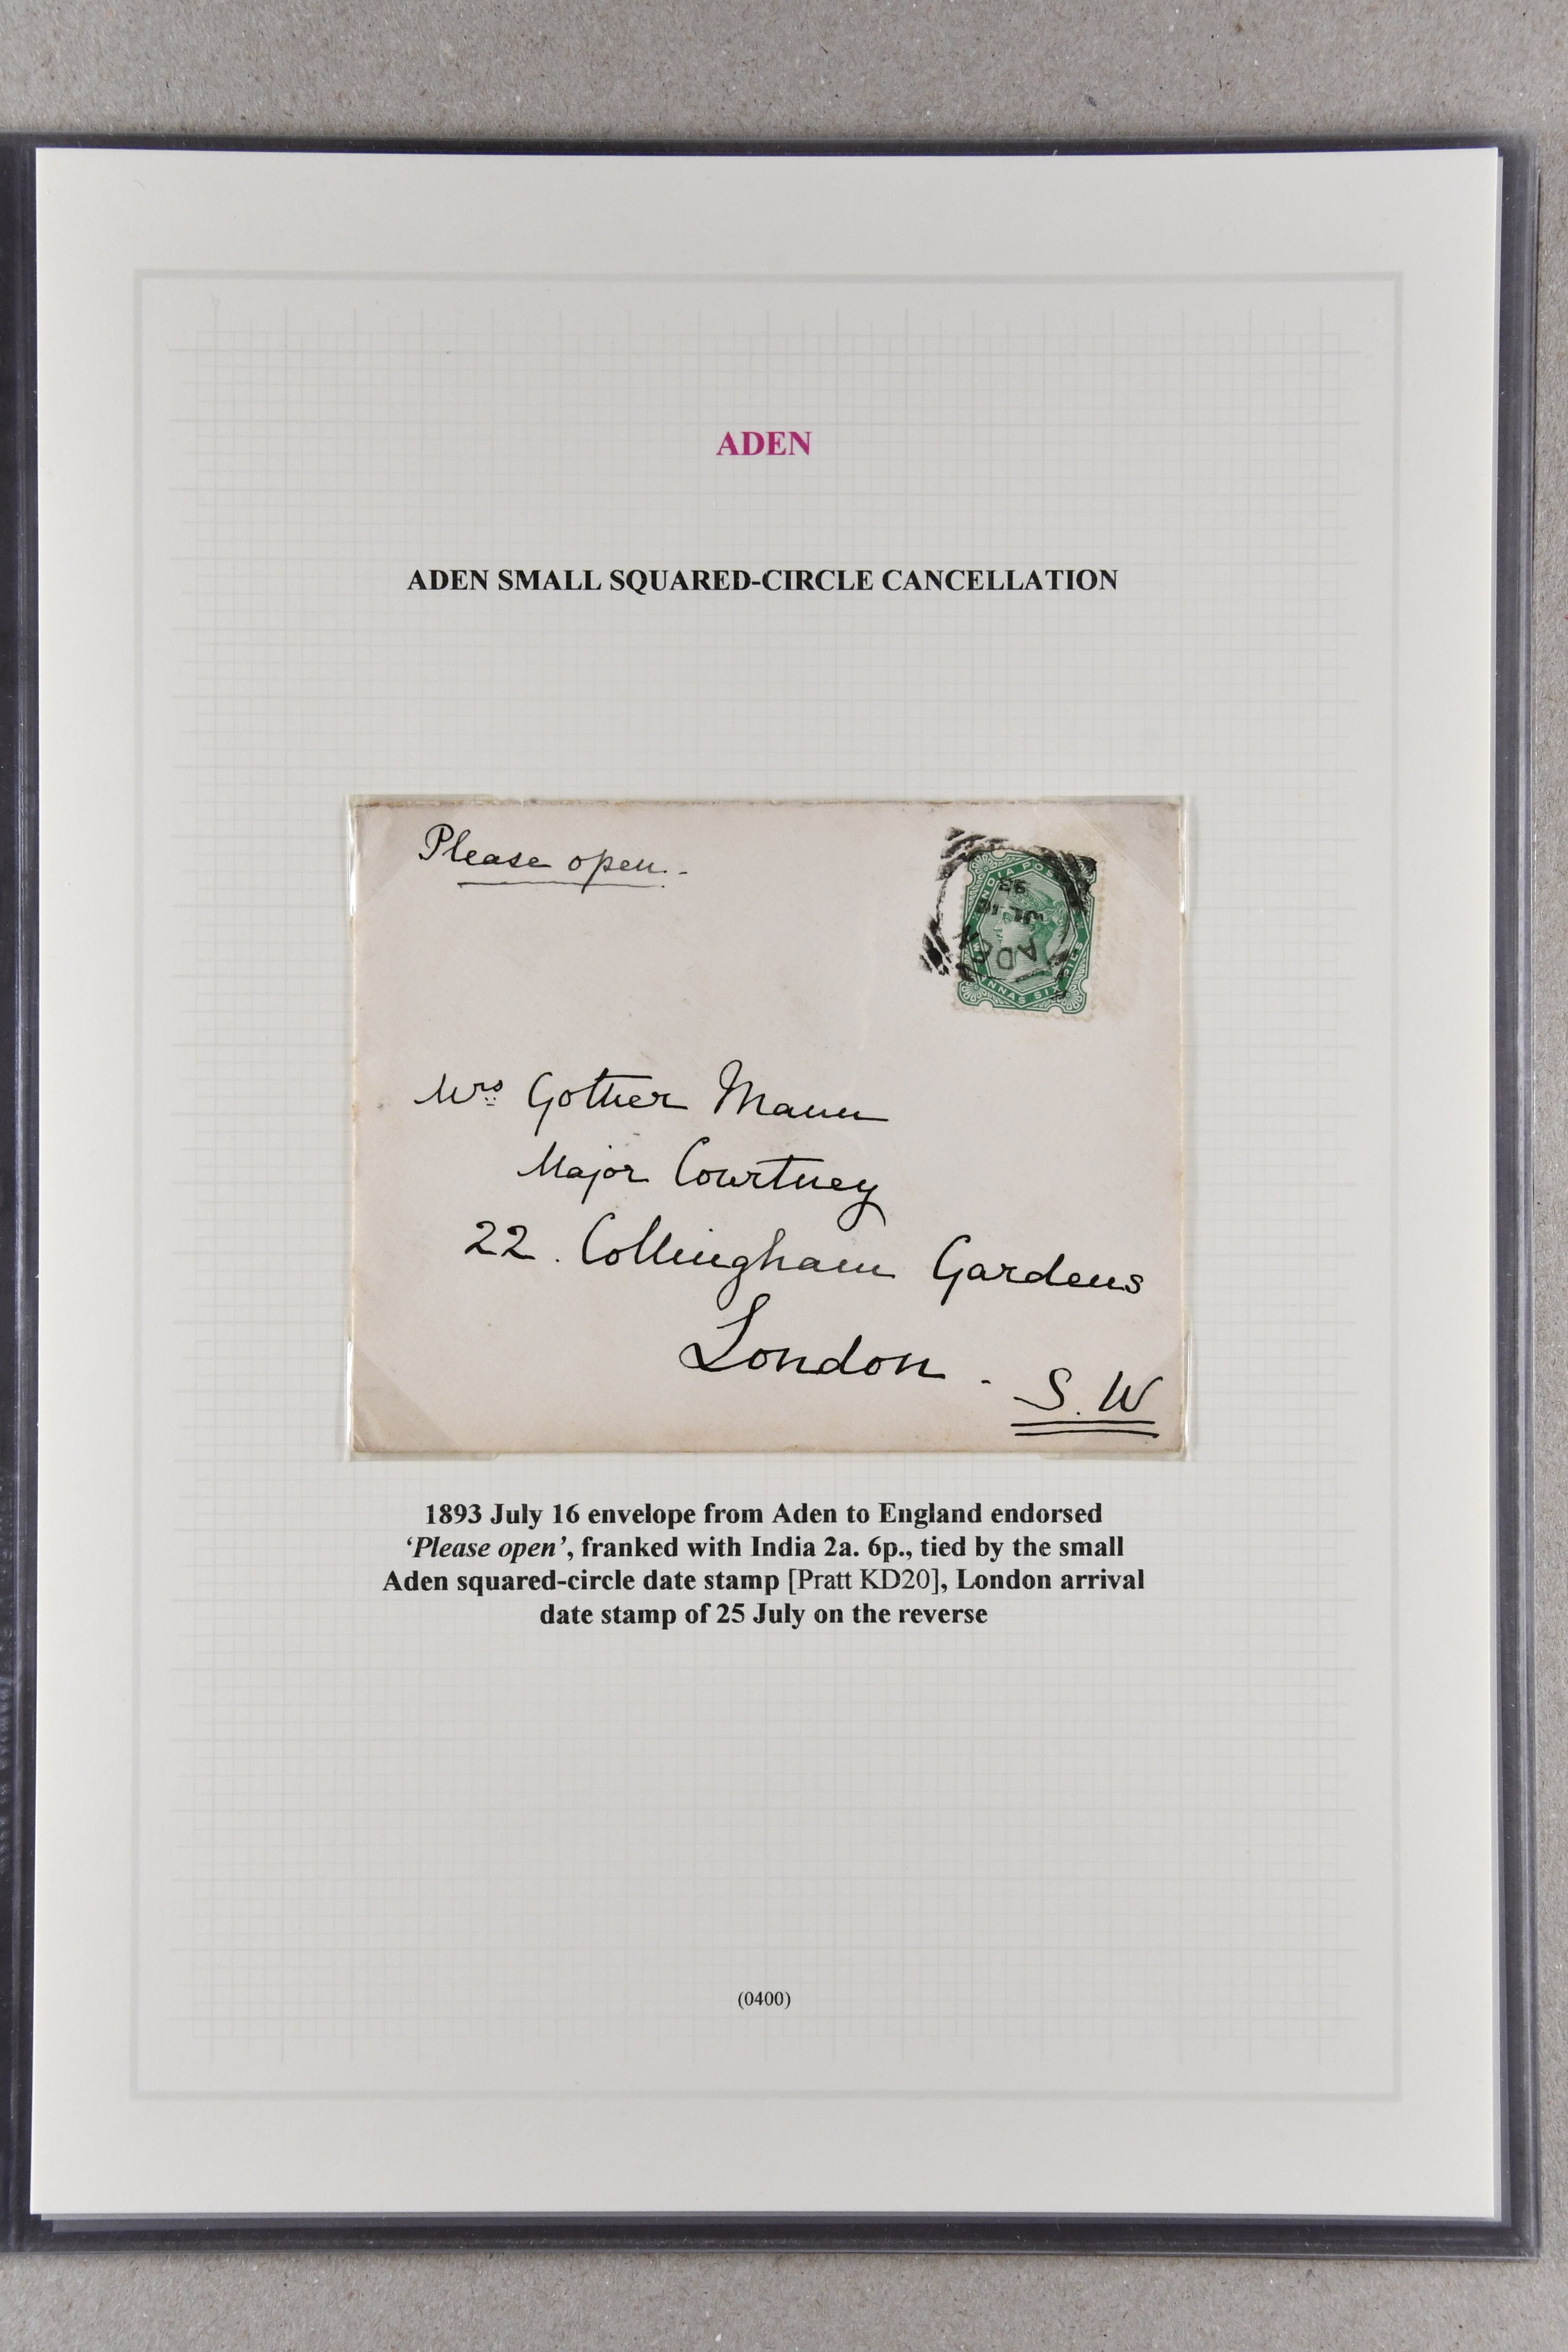 ADEN
ADEN SMALL SQUARED-CIRCLE CANCELLATION
Please open.
INDIA POS
ANNAS SIX
ADEN
JL 16
93
Mrs Gother Mann
Major Courtney
22. Collingham Gardens
London. S.W
1893 July 16 envelope from Aden to England endorsed
‘Please open’, franked with India 2a. 6p., tied by the small
Aden squared-circle date stamp [Pratt KD20], London arrival
date stamp of 25 July on the reverse
(0400)